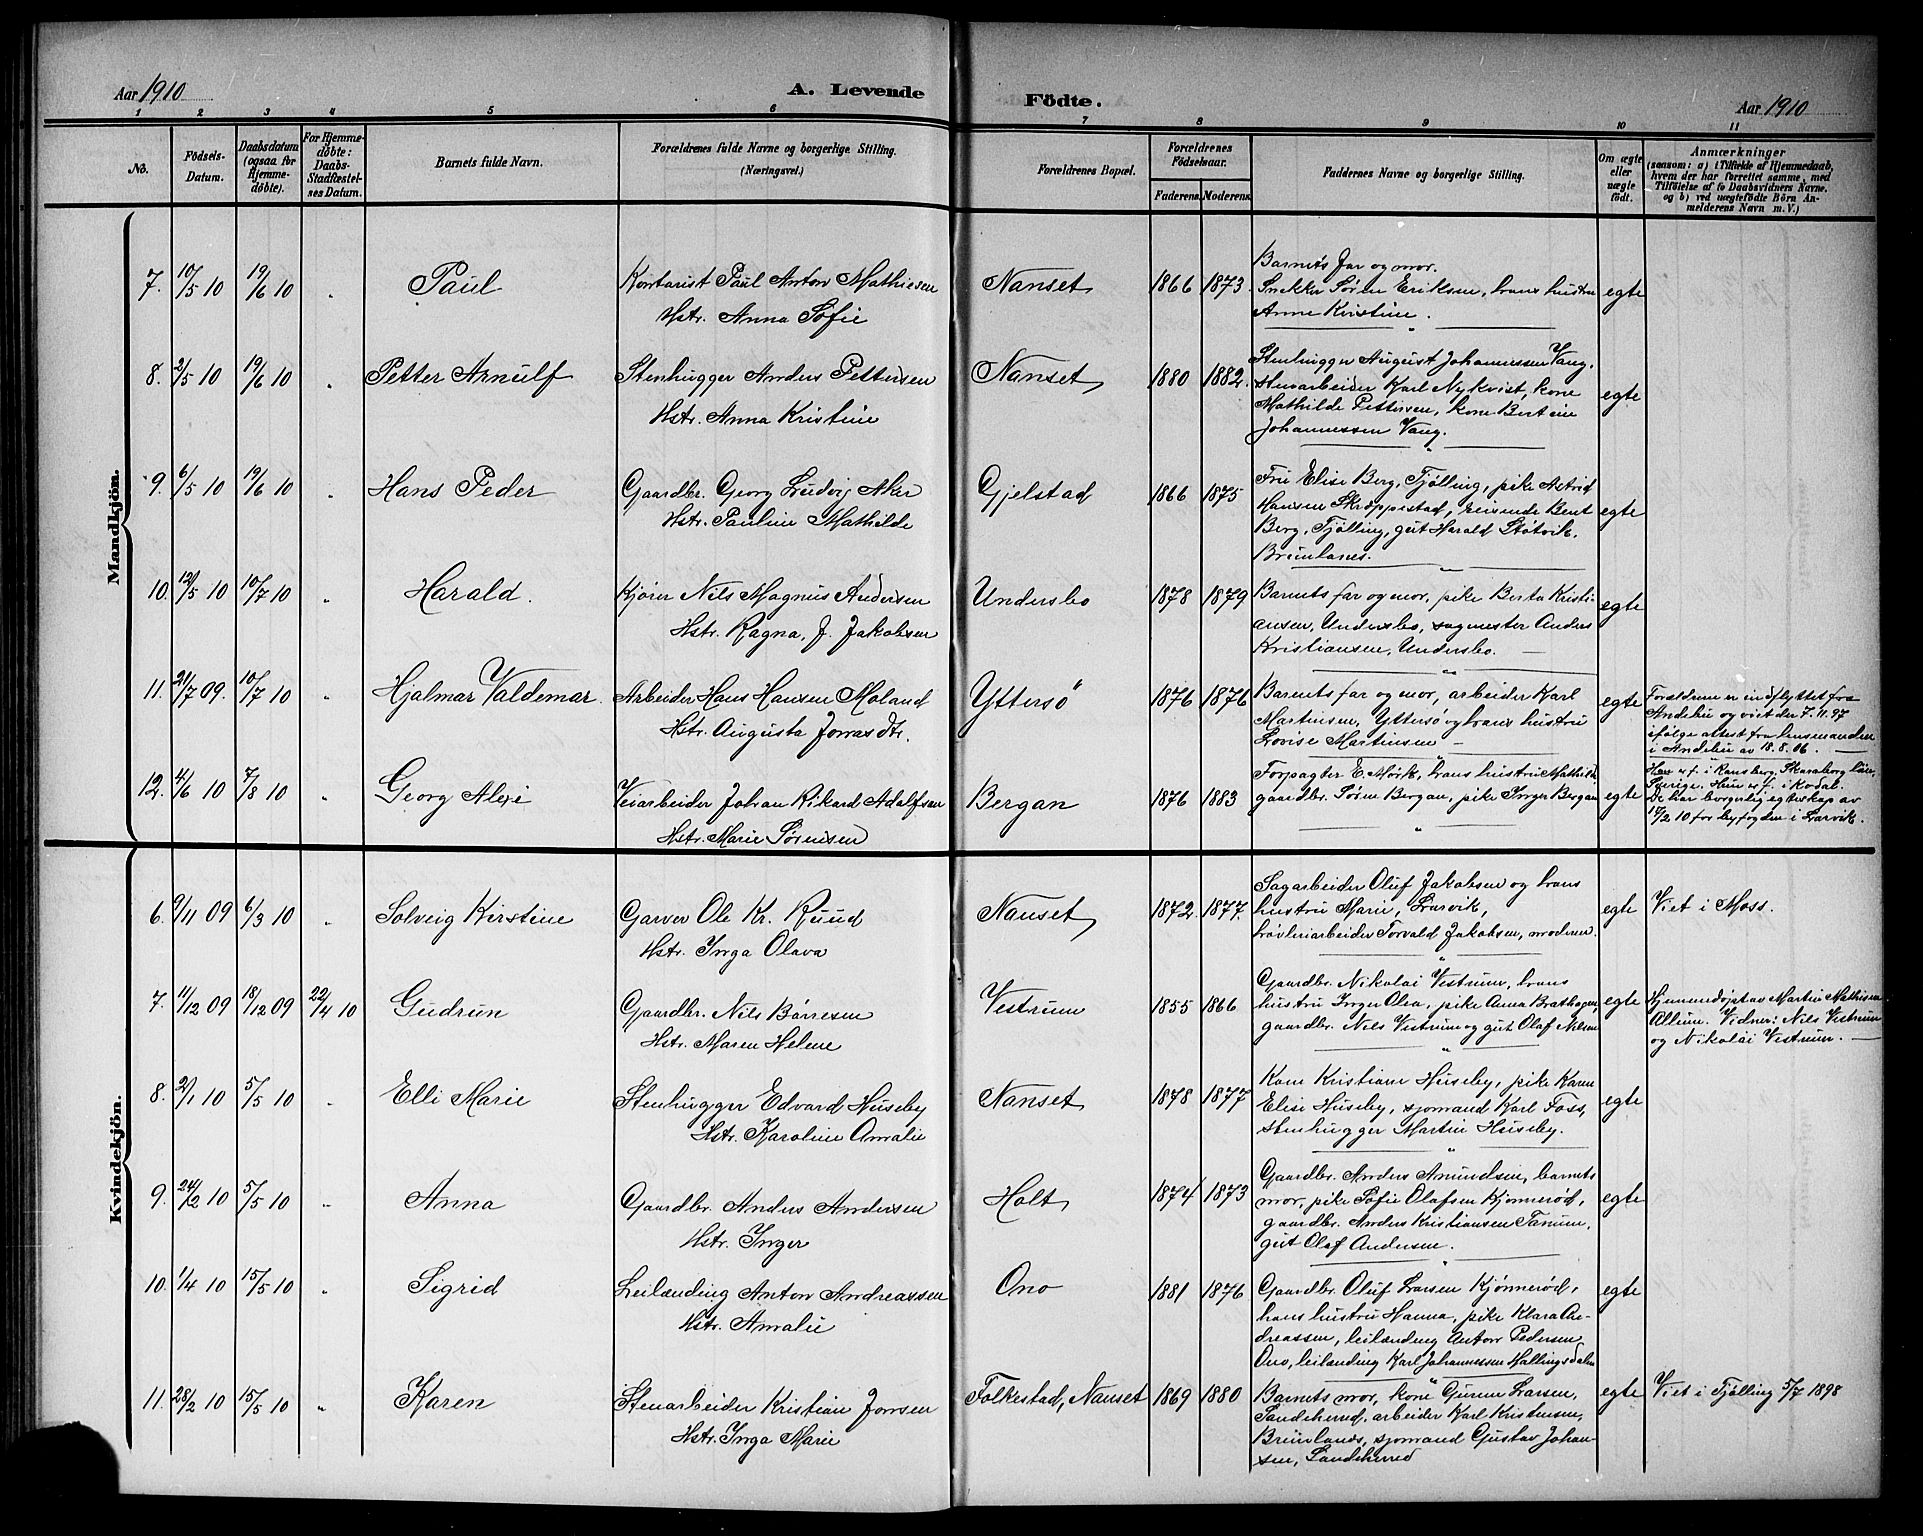 Aar 1910
A. Levende
Födte.
Aar 1910
1 2 3 4 5 6 7 8 9 10 11
No.
Födsels-
Datum.
Daabsdatum
(ogsaa for
Hjemme-
döbte).
For Hjemme-
döbte:
Daabs-
Stadfæstel-
ses Datum.
Barnets fulde Navn.
Forældrenes fulde Navne og borgerlige Stilling.
(Næringsvei.)
Forældrenes Bopæl.
Forældrenes
Födselsaar.
Faderens. Moderens.
Faddernes Navne og borgerlige Stilling.
Om ægte
eller
uægte
født.
Anmærkninger
(saasom: a) i Tilfælde af Hjemmedaab,
hvem der har forrettet samme, med
Tilföielse af to Daabsvidners Navne.
og b) ved uægtefödte Börn An-
melderens Navn m. V.)
Mandkjön.
7. 10/5 10 19/6 10 " Paul
Kontorist Paul Anton Mathiesen
Hstr. Anna Sofie
Nanset 1866 1873.
Barnets far og mor.
Snekker Sören Eriksen, hans hustru
Anne Kirstine.
egte
8. 2/5 10 19/6 10 " Petter Arnulf
Stenhugger Anders Pettersen
Hstr. Anna Kristine
Nanset 1880 1882.
Stenhugger August Johannessen Vang,
stenarbeider Karl Nykvist, kone
Mathilde Pettersen, kone Bertine
Johannessen Vang.
egte
9. 6/5 10 19/6 10 " Hans Peder
Gaardbr. Georg Ludvig Aker
Hstr. Pauline Mathilde
Gjelstad 1866 1875
Fru Elise Berg, Tjølling, pike Astrid
Hansen Skrøppestad, reisende Bent
Berg, Tjølling, gut Harald Støtvik,
Brunlanes.
egte
10. 12/5 10 10/7 10 " Harald.
Kjører Nils Magnus Andersen
Hstr. Ragna, J. Jakobsen
Undersbo 1878 1879
Barnets far og mor, pike Berta Kristi-
ansen, Undersbo, sagmester Anders
Kristiansen, Undersbo.
egte
11. 21/7 09. 10/7 10 " Hjalmar Valdemar.
Arbeider Hans Hansen Moland
Hstr. Augusta Jonasdtr.
Yttersö 1876 1876
Barnets far og mor, arbeider Karl
Martinsen, Yttersø og hans hustru
Lovise Martinsen
egte
Forældrene er indflyttet fra
Andebu og viet der 7.11.97
ifølge attest fra lensmanden
i Andebu av 18.8.06.
12. 4/6 10 7/8 10 " Georg Alexi
Veiarbeider Johan Rikard Adolfsen
Hstr. Marie Sørensen
Bergan 1876 1883
Forpagter E. Mørk, hans hustru Mathilde
gaardbr. Søren Bergan, pike Inger Bergan
egte
Han er f. i Ransberg, Skaraborg län,
Sverige. Hun er f. i Kodal.
De har borgerlig egteskap av
17/2 10 for byfogden i Larvik.
Kvindekjön.
6. 9/11 09 6/3 10 " Solveig Kirstine
Garver Ole Kr. Ruud
Hstr. Inga Olava
Nanset 1872. 1877.
Sagarbeider Oluf Jakobsen og hans
hustru Marie, Larvik,
høvleriarbeider Torvald Jakobsen, moderen.
egte
Viet i Moss.
7. 11/12 09 18/12 09 22/4 10 Gudrun
Gaardbr. Nils Børresen
Hstr. Maren Helene
Vestrum 1855 1866
Gaardbr. Nikolai Vestrum, hans
hustru Inger Olea, pike Anna Brathagen,
gaardbr. Nils Vestrum og gut Olaf Nilsen
egte
Hjemmedøpt av Martin Mathisen
Allum. Vidner: Nils Vestrum
og Nikolai Vestrum.
8. 2/1 10 5/5 10 " Elli Marie
Stenhugger Edvard Huseby
Hstr. Karoline Amalie
Nanset 1878 1877
Kone Kristiane Huseby, pike Karen
Elise Huseby, sjømand Karl Foss,
stenhugger Martin Huseby.
egte
9. 24/2 10 5/5 10 " Anna
Gaardbr. Anders Andersen
Hstr. Inger
Holt 1874 1873
Gaardbr. Anders Amundsen, barnets
mor, pike Sofie Olafsen Kjønnerød,
gaardbr. Anders Kristiansen Tanum,
gut Olaf Andersen.
egte
10. 1/4 10 15/5 10 " Sigrid
Leilænding Anton Andreassen
Hstr. Amalie
Ono 1881 1876
Gaardbr. Oluf Larsen Kjønnerød,
hans hustru Hanna, pike Klara An-
dreassen, leilænding Anton Pedersen
Ono, leilænding Karl Johannessen Hallingsdalen
egte
11. 28/2 10 15/5 10 " Karen
Stenarbeider Kristian Jonsen
Hstr. Inga Marie
Folkestad, Nanset 1869 1880
Barnets mor, kone Gurine Larsen,
Sandeherred, arbeider Karl Kristensen,
Brunlanes, sjømand Gustav Johan-
sen, Sandeherred
egte
Viet i Tjølling 5/7 1898